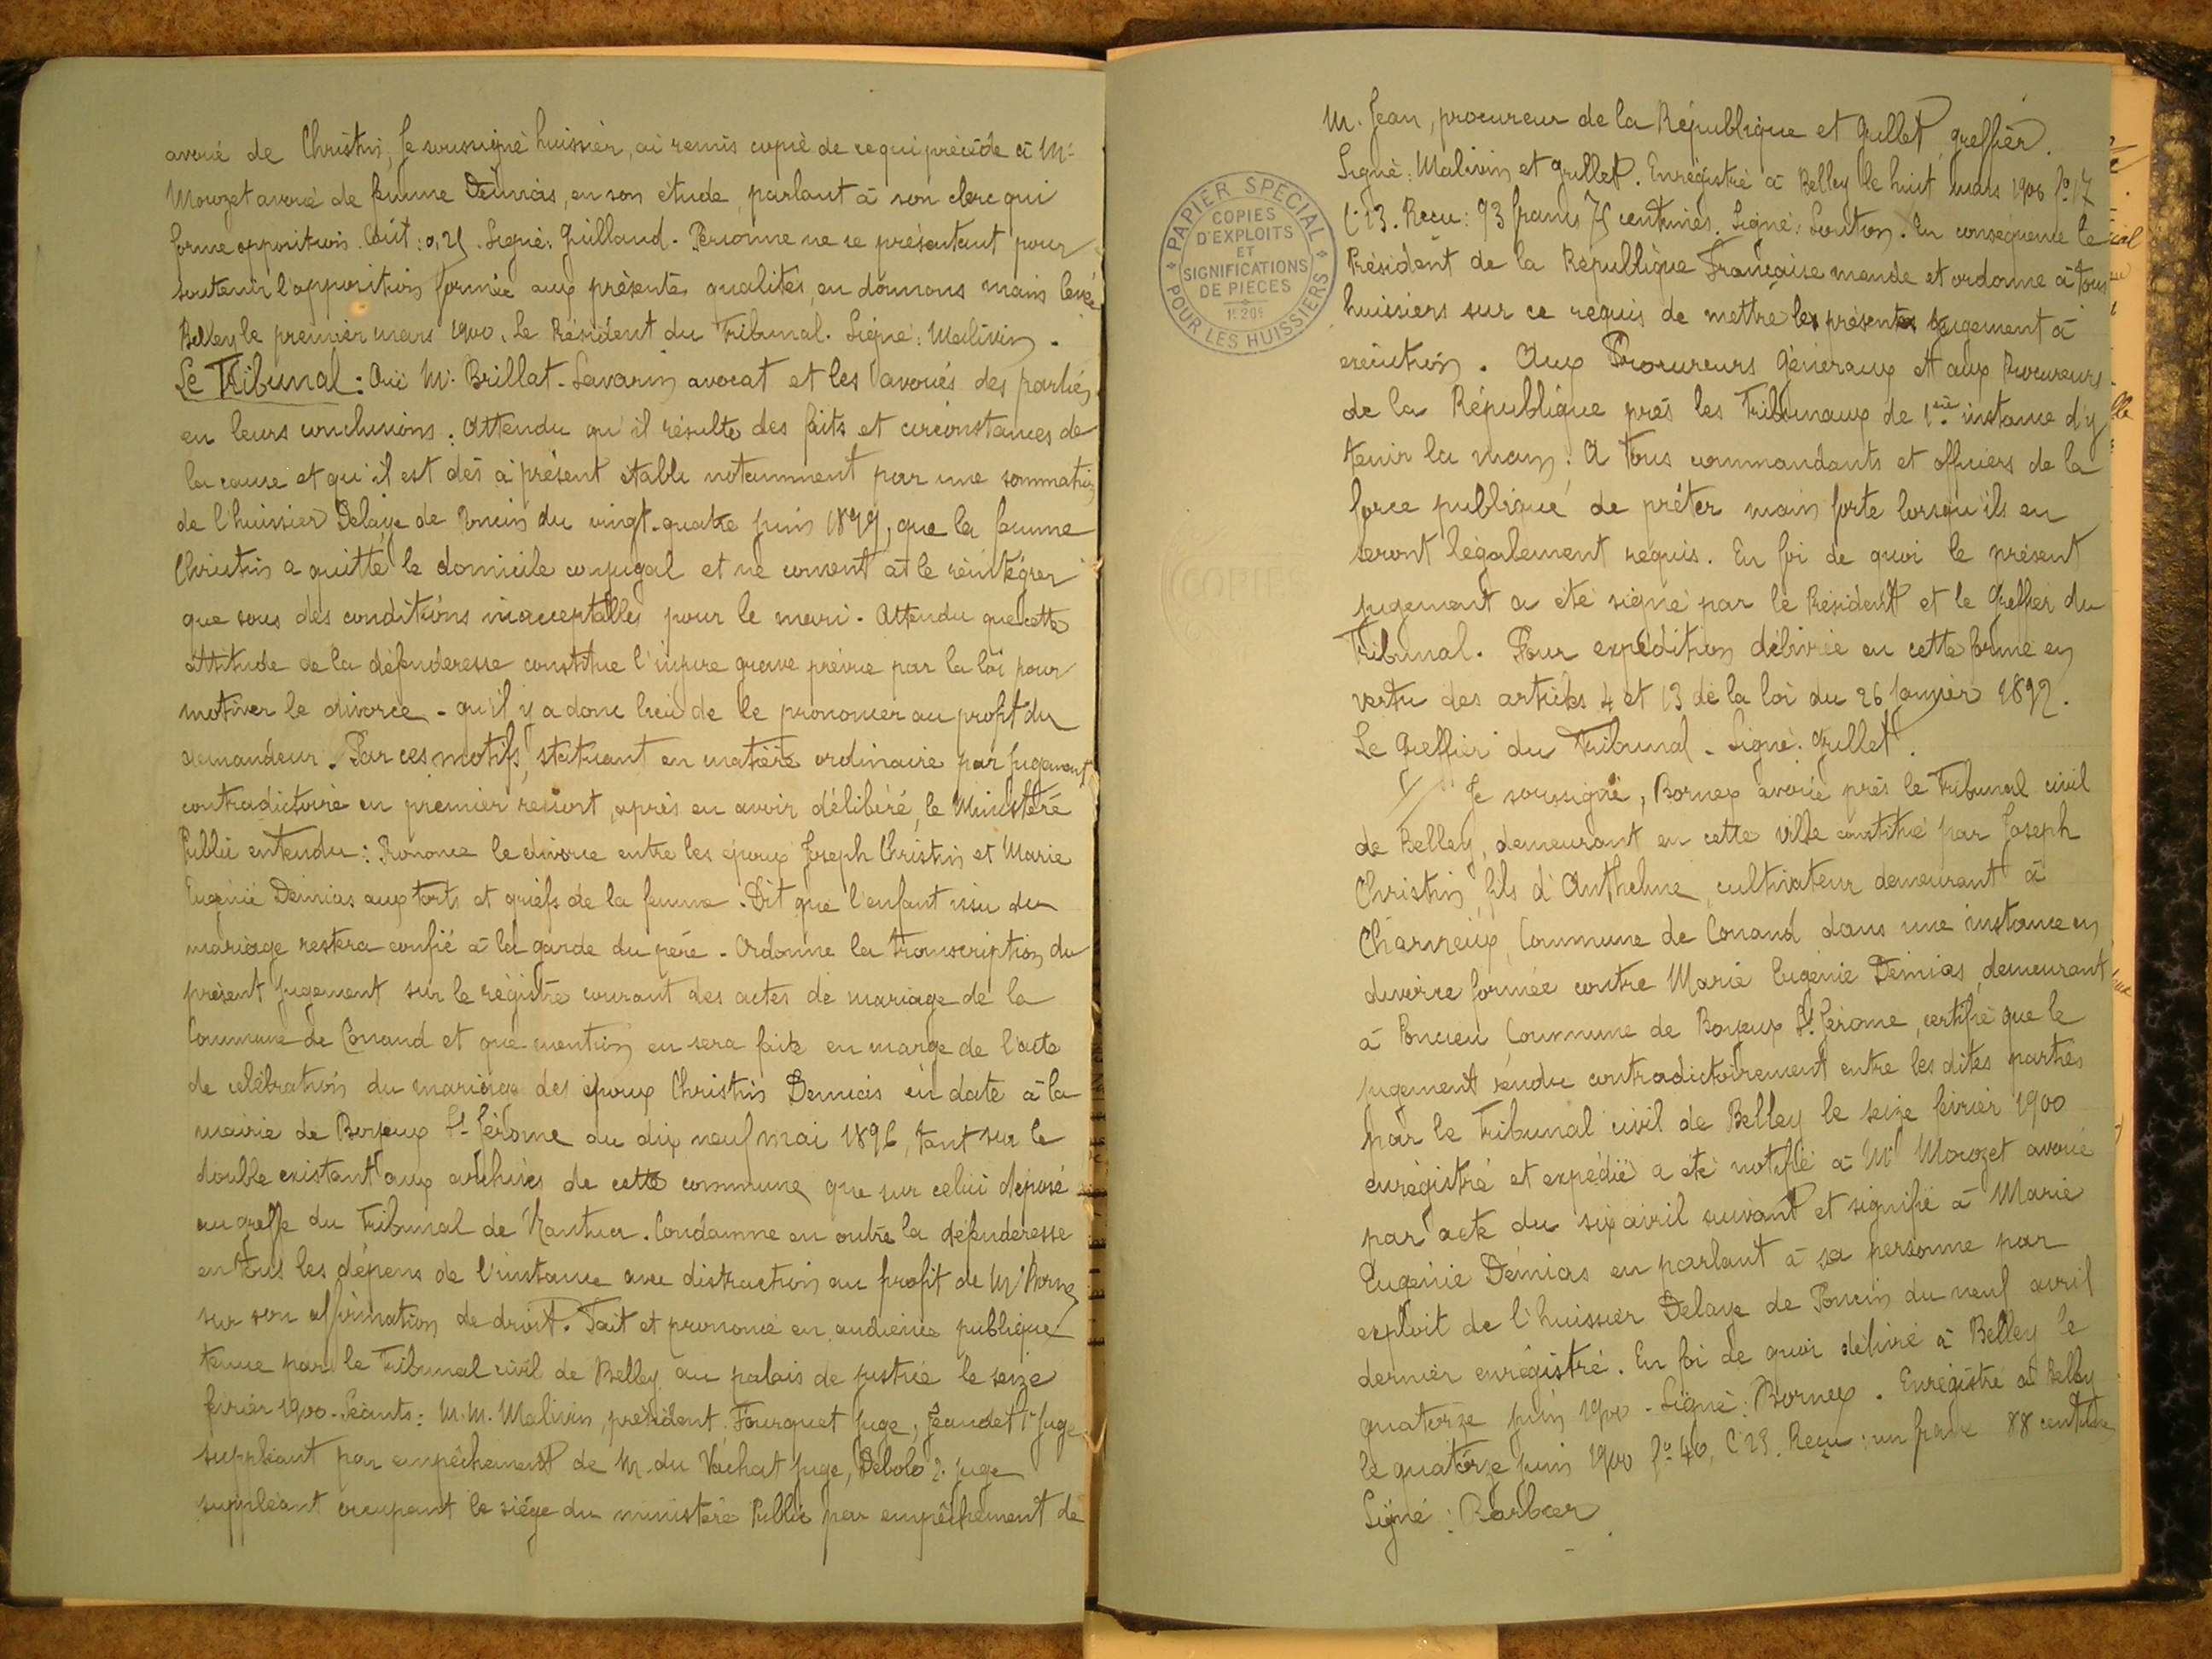 avoué de Christin, Je soussigné huissier, ai remis copie de ce qui précède à Me
Mouzet avoué de femme Démias, en son étude, parlant à son clerc qui
forme opposition. Coût: 0,25. Signé: Guilland. Personne ne se présentant pour
soutenir l'opposition formée aux présentes qualités, en donnons main levée
Belley le premier mars 1900. Le Président du Tribunal. Signé: Malivin.
Le Tribunal: Ouï Me Brillat-Savarin avocat et les avoués des parties
en leurs conclusions. Attendu qu'il résulte des faits et circonstances de
la cause et qu'il est dès à présent établi notamment par une sommation
de l'huissier Delaye de Poncin du vingt-quatre juin 1899, que la femme
Christin a quitté le domicile conjugal et ne consent à le réintégrer
que sous des conditions inacceptables pour le mari. Attendu que cette
attitude de la défenderesse constitue l'injure grave prévue par la loi pour
motiver le divorce - qu'il y a donc lieu de le prononcer au profit du
demandeur. Par ces motifs, statuant en matière ordinaire par jugement
contradictoire en premier ressort, après en avoir délibéré, le Ministère
Public entendu: Prononce le divorce entre les époux Joseph Christin et Marie
Eugénie Démias aux torts et griefs de la femme. Dit que l'enfant issu du
mariage restera confié à la garde du père. Ordonne la transcription du
présent jugement sur le régistre courant des actes de mariage de la
Commune de Conand et que mention en sera faite en marge de l'acte
de célébration du mariage des époux Christin Demias en date à la
mairie de Boyeux St Jérôme du dix neuf mai 1896, tant sur le
double existant aux archives de cette commune que sur celui déposé
au greffe du Tribunal de Nantua. Condamne en outre la défenderesse
en tous les dépens de l'instance avec distraction au profit de Me Bornex
sur son affirmation de droit. Fait et prononcé en audience publique
tenue par le Tribunal civil de Belley au palais de justice le seize
février 1900. Séants: M.M. Malivin, président, Fourquet juge, Jeandet 1er juge
suppléant par empêchement de M. du Vachat juge, Debolo 2e juge
suppléant occupant le siège du ministère Public par empêchement de
M. Jean, procureur de la République et Grillet, greffier.
Signé: Malivin et Grillet. Enrégistré à Belley le huit mars 1900 fo 17
C. 13. Reçu: 93 francs 75 centimes. Signé: Souton. En conséquence le
Président de la République Française mande et ordonne à tous
huissiers sur ce requis de mettre le présent jugement à
exécution. Aux Procureurs Généraux et aux Procureurs
de la République près les Tribunaux de 1ère instance d'y
tenir la main. A tous commandants et officiers de la
force publique de prêter main forte lorsqu'ils en
seront légalement requis. En foi de quoi le présent
jugement a été signé par le Président et le Greffier du
Tribunal. Pour expédition délivrée en cette forme en
vertu des articles 4 et 13 de la loi du 26 Janvier 1892.
Le Greffier du Tribunal. Signé: Grillet.
Je soussigné, Bornex avoué près le Tribunal civil
de Belley, demeurant en cette ville constitué par Joseph
Christin, fils d'Anthelme, cultivateur demeurant à
Charvieux, Commune de Conand dans une instance en
divorce formée contre Marie Eugénie Démias, demeurant
à Poncieu Commune de Boyeux St Jérome, certifie que le
jugement rendu contradictoirement entre les dites parties
par le Tribunal civil de Belley le seize février 1900
enrégistré et expédié a été notifié à Me Mouzet avoué
par acte du six avril suivant et signifié à Marie
Eugénie Démias en parlant à sa personne par
exploit de l'huissier Delaye de Poncin du neuf avril
dernier enrégistré. En foi de quoi délivré à Belley le
quatorze juin 1900. Signé: Bornex. Enrégistré à Belley
le quatorze juin 1900 fo 40, C 23. Reçu: un franc 88 centimes
Signé: Barbier.
PAPIER SPECIAL
COPIES
D'EXPLOITS
ET
SIGNIFICATIONS
DE PIECES
POUR LES HUISSIERS
COPIE